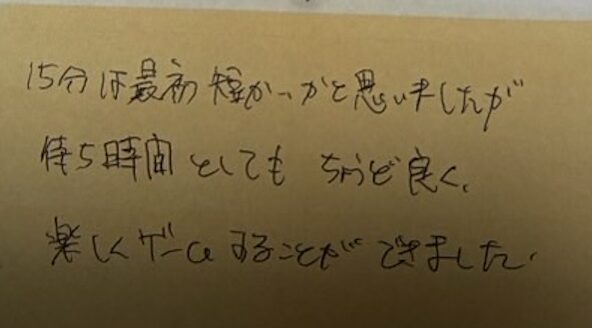 15分は最初短かっかと思いましたが
待ち時間としても ちょうど良く、
楽しくゲームすることができました。